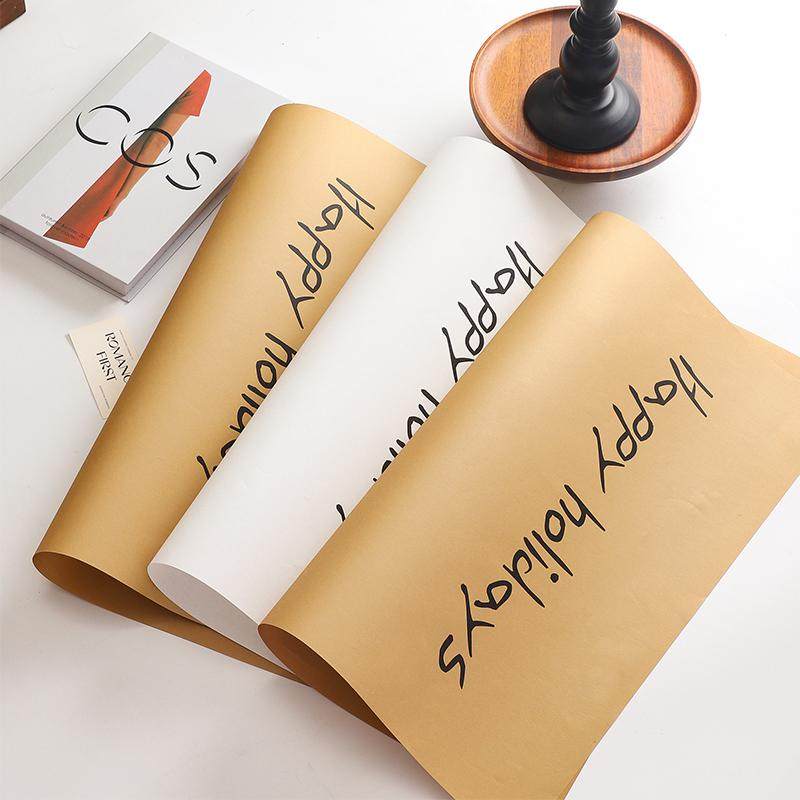 COS
ROMANC
FIRST
Happy holiday
Happy holiday
Happy holidays